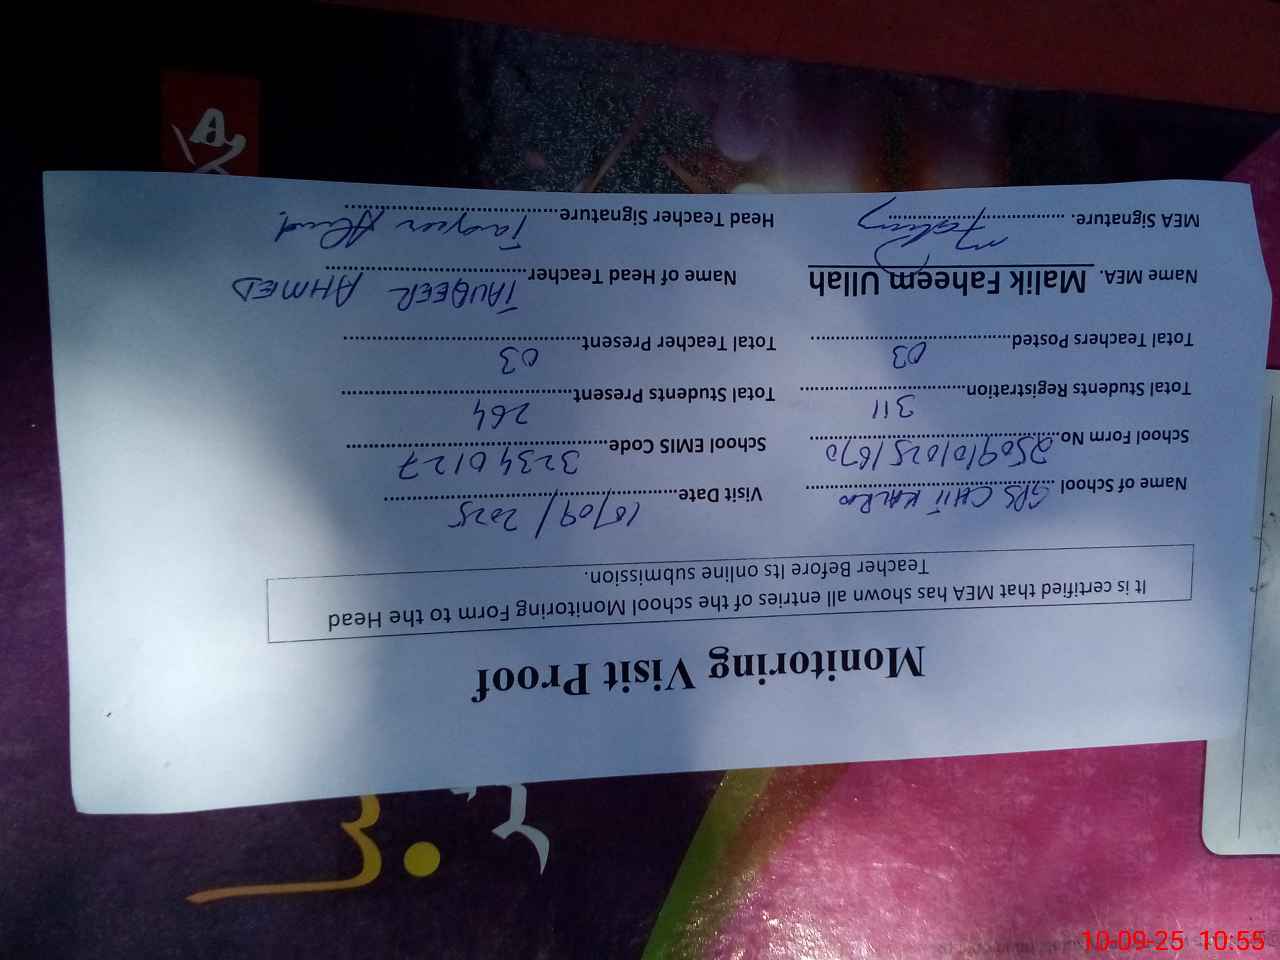 Monitoring Visit Proof
It is certified that MEA has shown all entries of the school Monitoring Form to the Head
Teacher Before Its online submission.
Name of School GPS CHIT KALRO Visit Date 10/09/2025
School Form No. 25090101025 1670 School EMIS Code. 32340127
Total Students Registration 311 Total Students Present 264
Total Teachers Posted 03 Total Teacher Present 03
Name MEA. Malik Faheem Ullah Name of Head Teacher TAUQEER AHMED
MEA Signature. Head Teacher Signature Tauqeer Ahmed
10-09-25 10:55